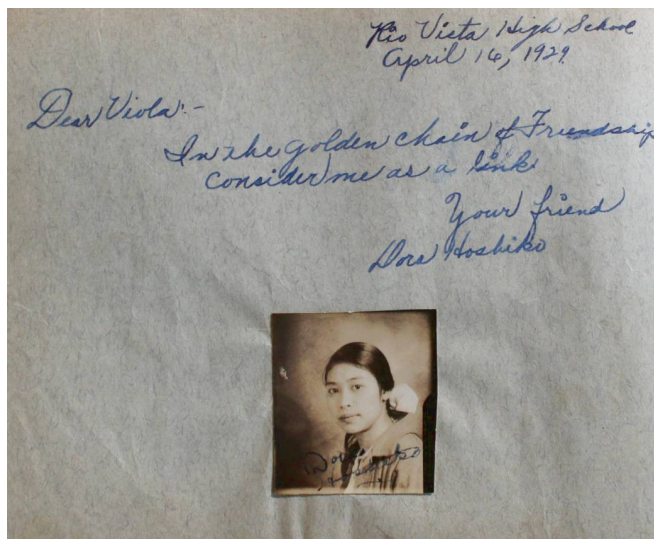 Rio Vista High School
April 16, 1929.
Dear Viola:-
In the golden chain of Friendship
consider me as a link
Your friend
Dora Hoshiko
Dora